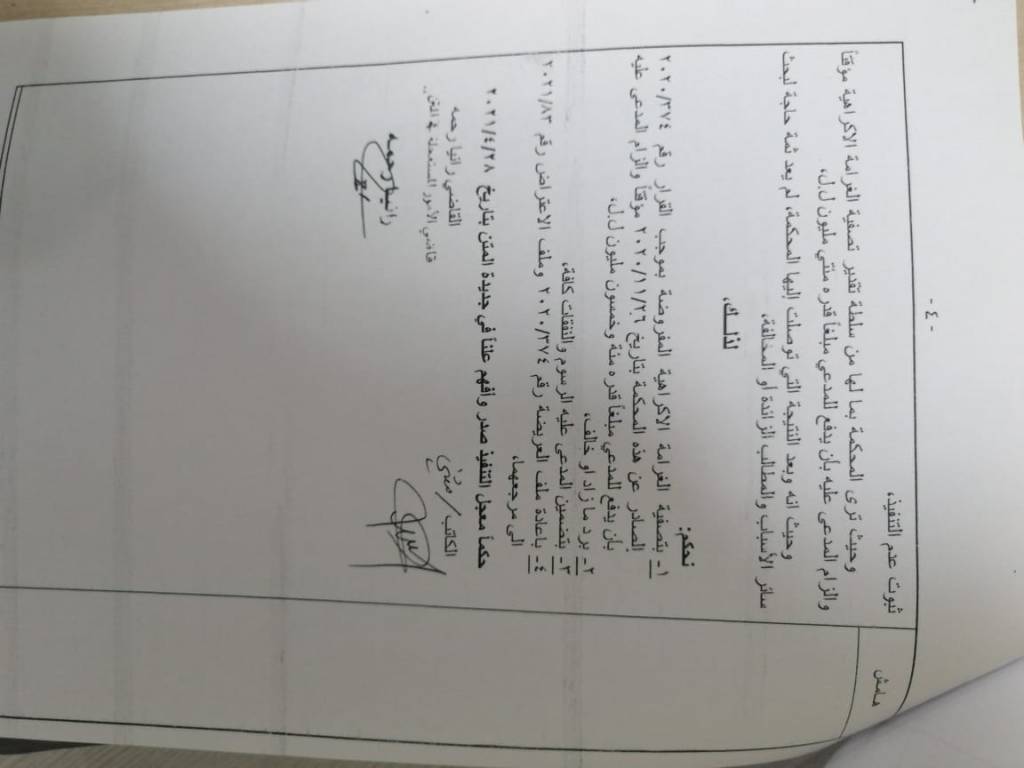 - ٤ -
هامش
ثبوت عدم التنفيذ،
وحيث ترى المحكمة بما لها من سلطة تقدير تصفية الغرامة الاكراهية مؤقتاً
والزام المدعى عليه بأن يدفع للمدعي مبلغاً قدره مئتي مليون ل.ل.،
وحيث انه وبعد النتيجة التي توصلت إليها المحكمة، لم يعد ثمة حاجة لبحث
سائر الأسباب والمطالب الزائدة أو المخالفة،
لذلك
نحكم:
١- بتصفية الغرامة الاكراهية المفروضة بموجب القرار رقم ٢٠٢٠/٣٧٤
الصادر عن هذه المحكمة بتاريخ ٢٠٢٠/١١/٢٦ مؤقتاً والزام المدعى عليه
بأن يدفع للمدعي مبلغاً قدره مئة وخمسون مليون ل.ل.،
٢- برد ما زاد او خالف،
٣- بتضمين المدعى عليه الرسوم والنفقات كافة،
٤- باعادة ملف العريضة رقم ٢٠٢٠/٣٧٤ وملف الاعتراض رقم ٢٠٢١/٨٣
الى مرجعهما،
حكماً معجل التنفيذ صدر وأفهم علناً في جديدة المتن بتاريخ ٢٠٢١/٤/٢٨
الكاتب/ القاضي رانيا رحمه
قاضي الأمور المستعجلة في المتن
رانيا رحمه